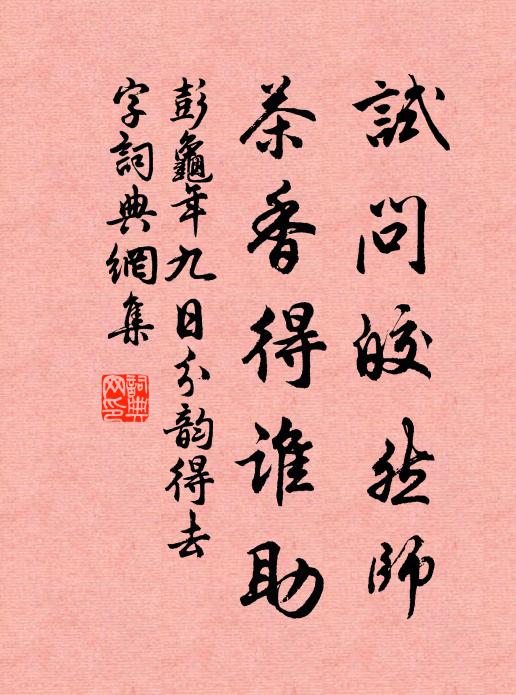 試問皎然師
茶香得誰助
彭龜年九日分韵得去
字詞典網集
詞典
网印